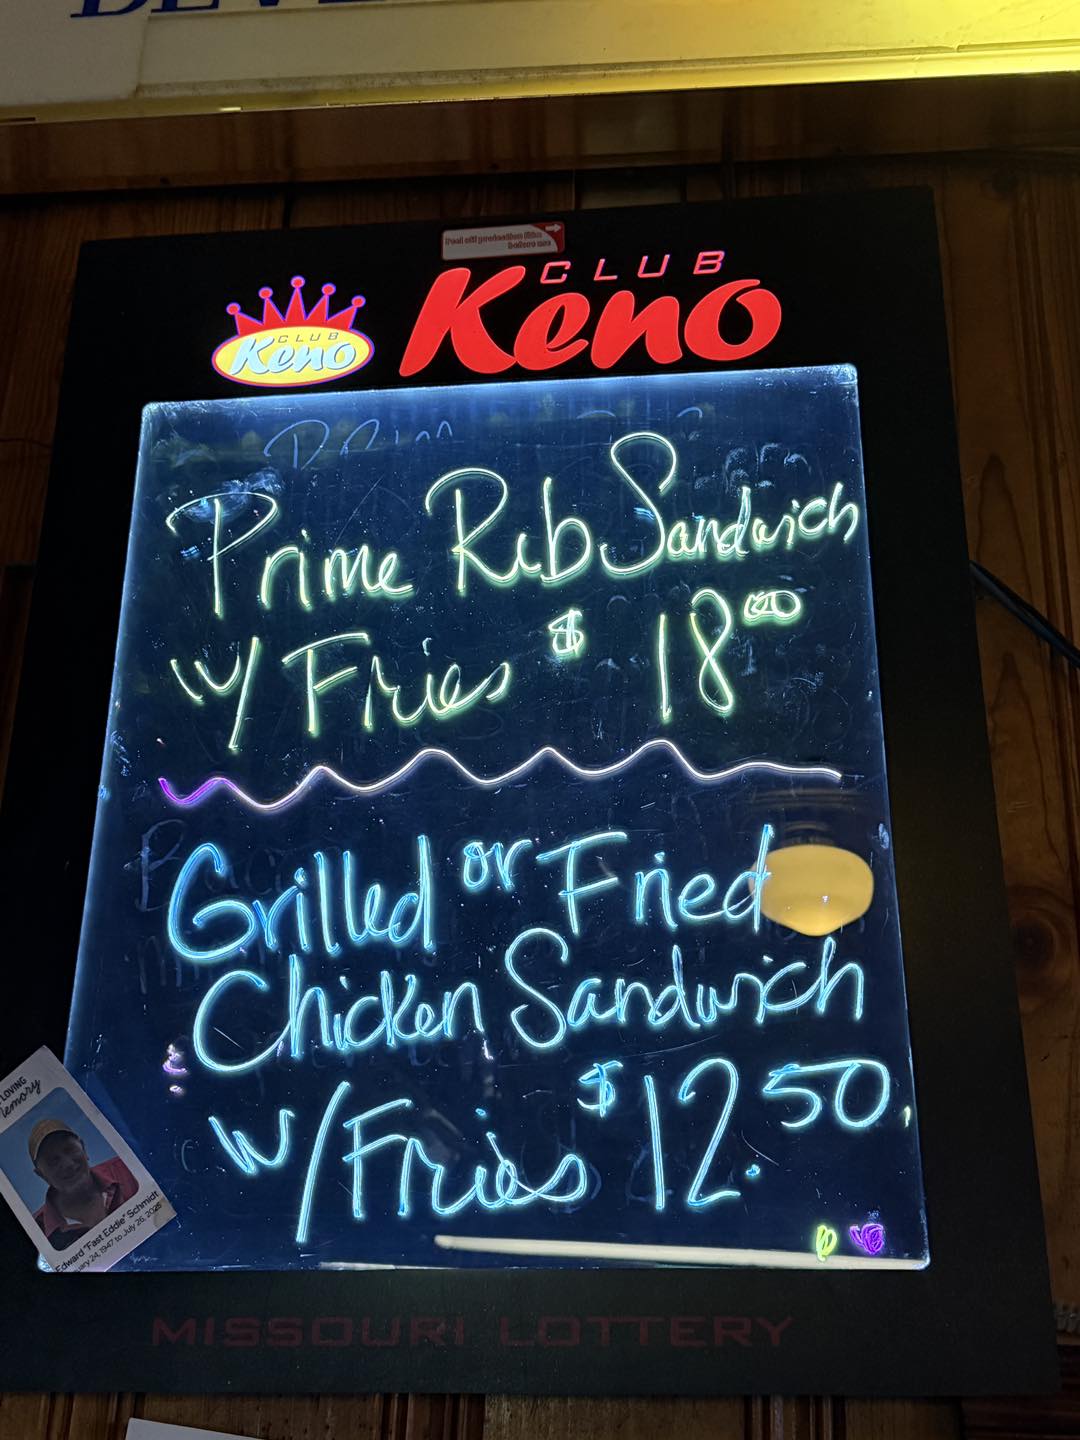 Peel off protection film
before use
CLUB
Keno
CLUB
Keno
Prime Rib Sandwich
w/ Fries $ 18 00
Grilled or Fried
Chicken Sandwich
w/ Fries $ 12.50
LOVING
Memory
Edward "Fast Eddie" Schmidt
24, 1947 to July 26, 2025
MISSOURI LOTTERY